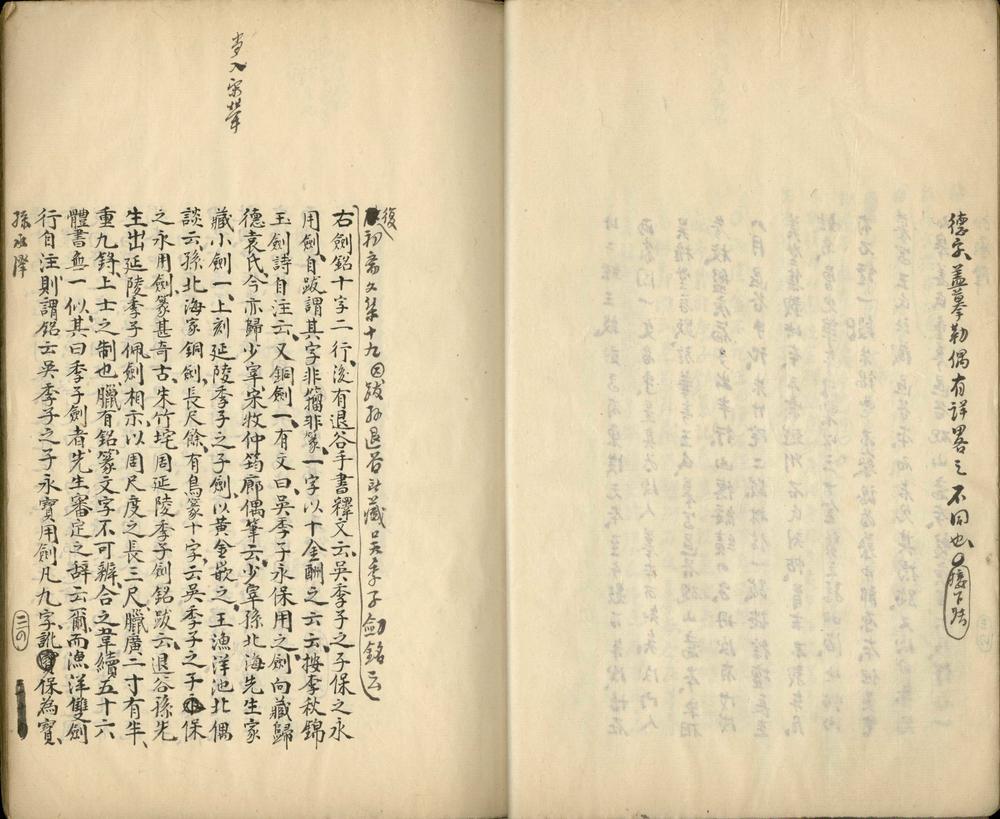 德字、蓋摹勒偶有詳畧之不同也、接下跋
当入宋犖
復初齋文集十九跋孫退谷所藏吳季子劍銘云
右劍銘十字二行、後有退谷手書釋文云、吳季子之子保之永
用劍、自跋謂其字非籀非篆、一字以十金酬之云云、按李秋錦
玉劍詩自注云、又銅劍一、有文曰吳季子永保用之劍、向藏歸
德袁氏、今亦歸少宰、宋牧仲筠廊偶筆云、少宰孫北海先生家
藏小劍一、上刻延陵季子之子劍、以黃金嵌之、王漁洋池北偶
談云、孫北海家銅劍、長尺餘、有鳥篆十字、云吳季子之子保
之永用劍、篆甚奇古、朱竹垞周延陵季子劍銘跋云、退谷孫先
生出延陵季子佩劍相示、以周尺度之、長三尺、臘廣二寸有半、
重九鋝、上士之制也、臘有銘篆文字不可辨、合之韋續五十六
體書、無一似、其曰季子劍者、先生審定之辞云爾、而漁洋雙劍
行自注則謂銘云吳季子之子永寶用劍、凡九字、訛保為寶、
孫承澤
二四